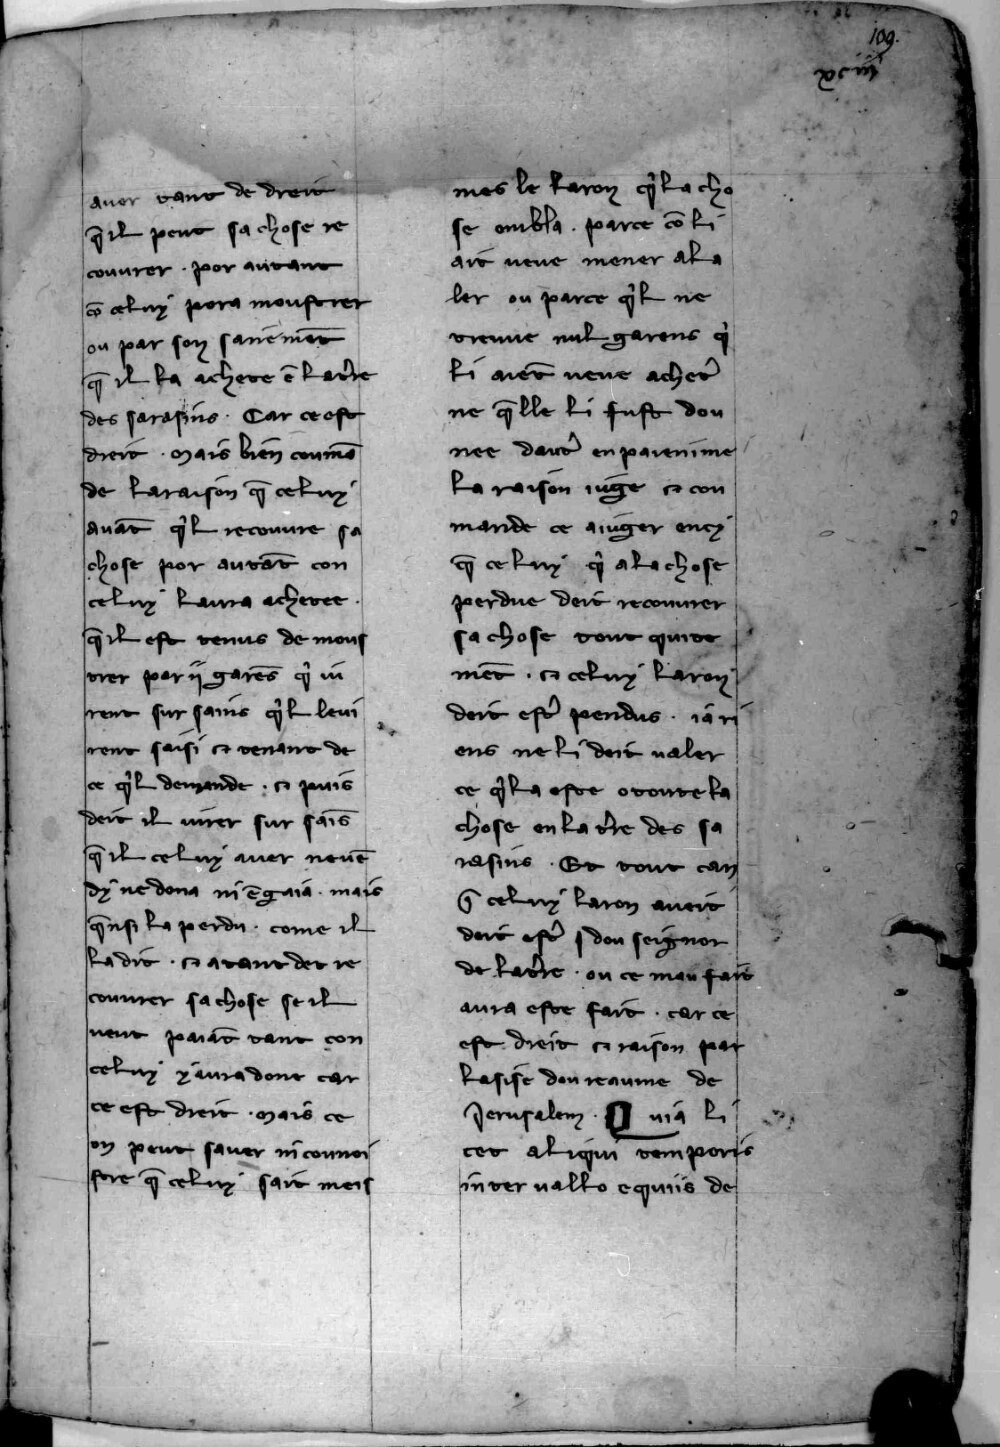 109.
xciii
auer tant de dreit
q̄ il peut sa chose re
couurer · por autant
cō celuy pora moustrer
ou par son sairemēt
q̄ il la achete ē la tr̄re
des sarasins · Car ce est
dreit · mais bien coumā
de la raison q̄ celuy
auāt q̓l recouure sa
chose por autāt con
celuy laura achetee ·
q̄ il est tenus de mous
trer par ii garēs q̓ iu
rent sur sains q̓l le ui
rent saisi ⁊ tenant de
ce q̓l demande · ⁊ puis
deit il iurer sur sāis
q̄ il celuy auer ne uē
dy ne dona ni ēgaia · mais
q̄nsi la perdu · come il
la dit · ⁊ atant det re
couurer sa chose se il
ueut paiāt tant con
celuy y aura doné car
ce est dreit · mais ce
on peut sauer ni connoi
stre q̄ celuy sait meis
mes le laron q̓ la cho
se enbla · parce cō li
ait ueue mener a la
ler ou parce q̓l ne
treuue nul garens q̓
li aiēt ueue achet̓
ne q̄lle li fust dou
nee daut̓ en paienime
la raison iuge ⁊ con
mande ce aiuger ency
q̄ celuy q̓ a la chose
perdue deit recouurer
sa chose tout quite
mēt · ⁊ celuy laron
deit est̓ pendus · ia ri
ens ne li deit ualer
ce q̓l a este o toute la
chose en la tr̄re des sa
rasins · Et tout can
q̄ celuy laron aueit
deit est̓ dou seignor
de la tr̄re · ou ce mau fait
aura este fait · car ce
est dreit ⁊ raison par
lasise dou reaume de
Jerusalem · Quia li
cet aliqui temporis
interuallo equiis de